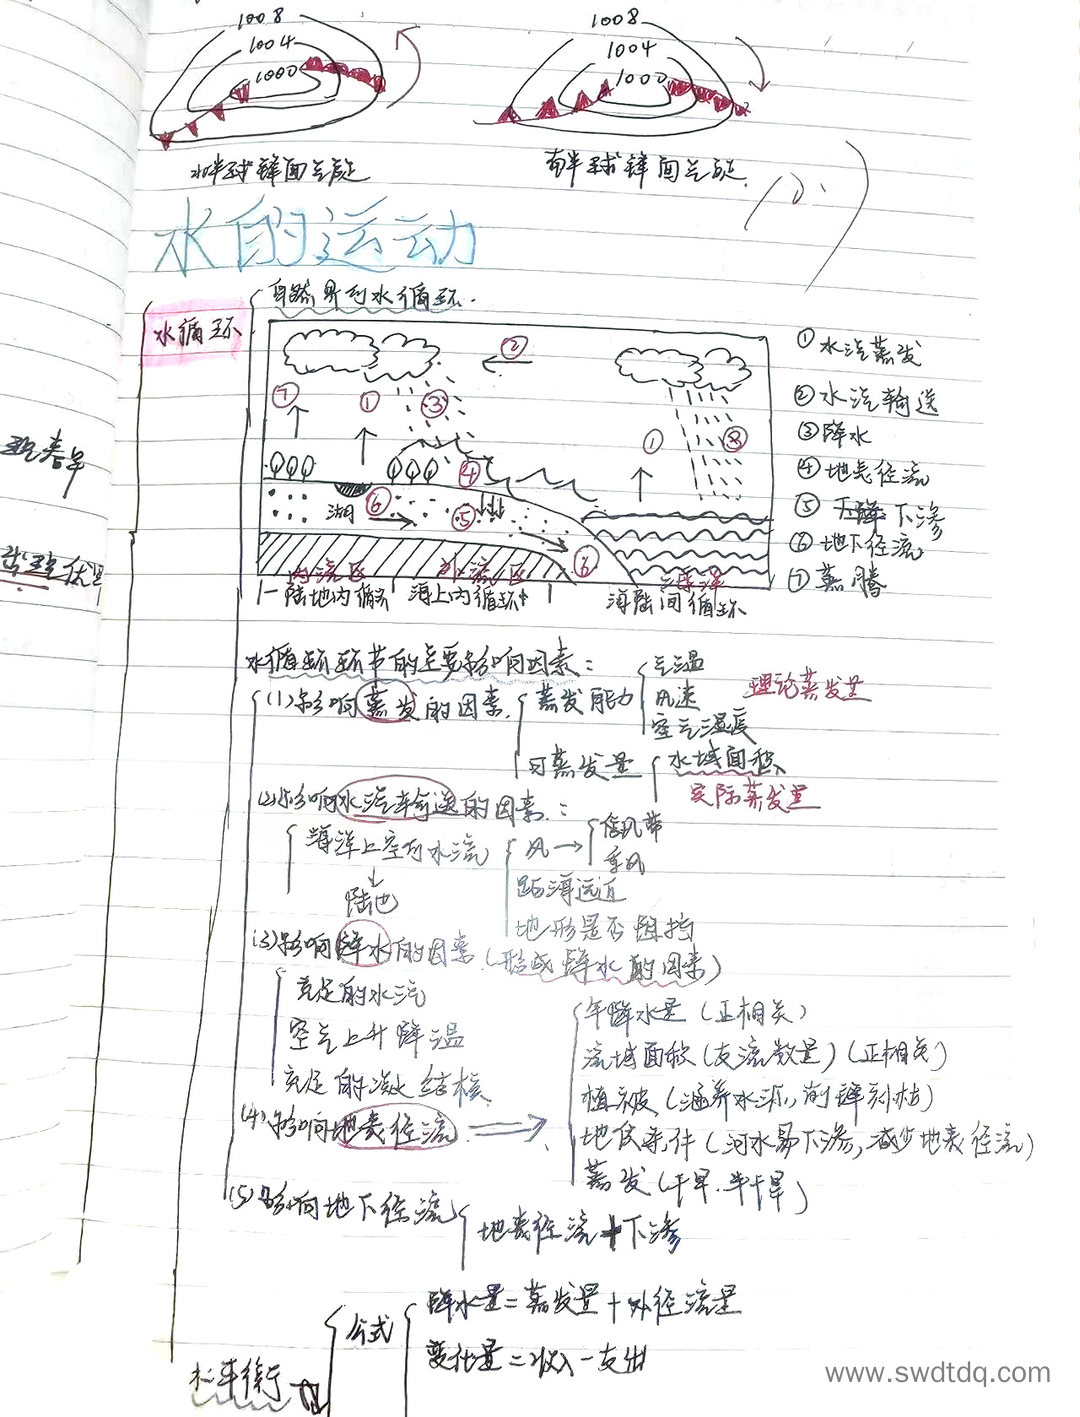 1008
1004
1000
1008
1004
1000
北半球锋面气旋
南半球锋面气旋
水的运动
水循环
自然界的水循环
① 水汽蒸发
② 水汽输送
③ 降水
④ 地表径流
⑤ 下渗
⑥ 地下径流
⑦ 蒸腾
② ⑦ ① ③ ① ⑧
④ ⑥ ⑤ ⑥
湖
内流区 外流区 海洋
陆地内循环 海上内循环 海陆间循环
水循环环节的主要影响因素:
(1)影响蒸发的因素
蒸发能力
气温
风速
空气湿度
理论蒸发量
可蒸发量
水域面积
实际蒸发量
(2)影响水汽输送的因素:
海洋上空的水流
↓
陆地
风→
信风带
季风
距海远近
地形是否阻挡
(3)影响降水的因素(形成降水的因素)
充足的水汽
空气上升降温
充足的凝结核
(4)影响地表径流
年降水量(正相关)
流域面积(支流数量)(正相关)
植被(涵养水源,削峰补枯)
地质条件(河水易下渗,减少地表径流)
蒸发(干旱、半干旱)
(5)影响地下径流
地表径流+下渗
水平衡
公式
降水量=蒸发量+外径流量
变化量=收入-支出
www.swdtdq.com